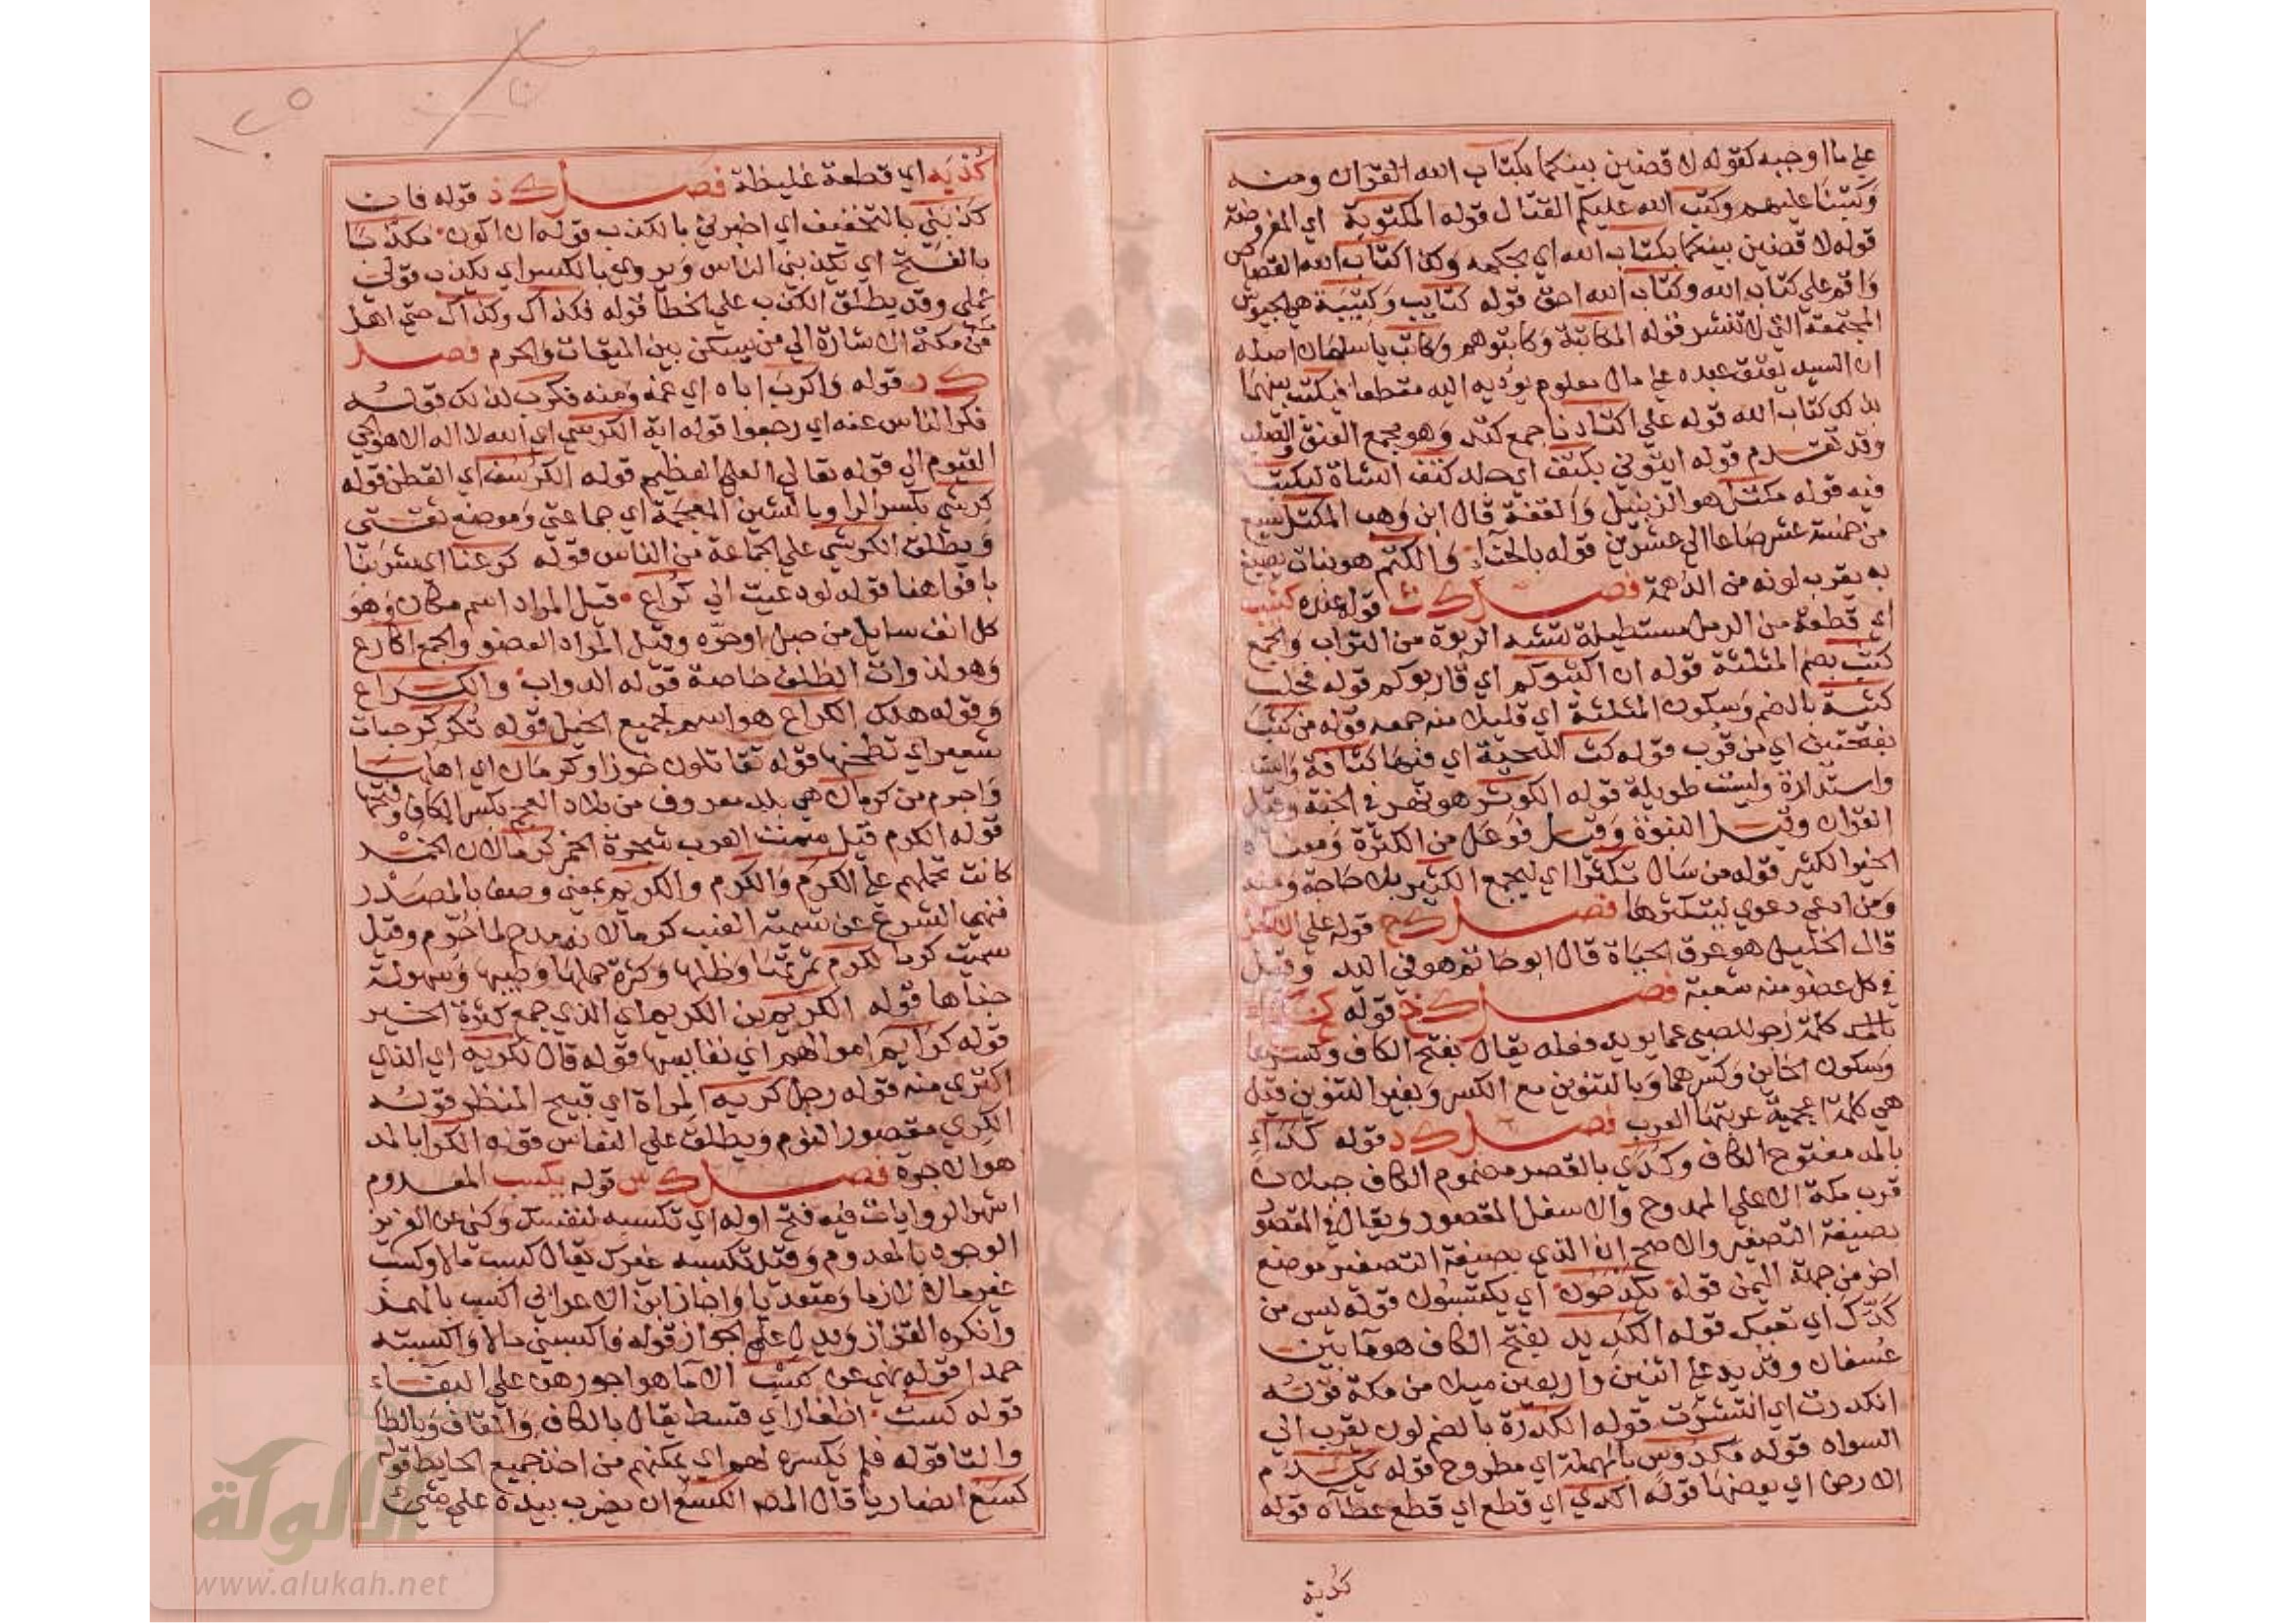 علي ما اوجبه كقوله لاقضين بينكما بكتاب الله القران ومنه
وكتبنا عليهم وكتب الله عليكم القتال قوله المكتوبة اي المفروضة
قوله لاقضين بينكما بكتاب الله اي بحكمه وكذا كتاب الله القصاص
واقم علي كتاب الله وكتاب الله احق قوله كتايب وكتيبة هي الجيوش
المجتمعة التي لا تنتشر قوله المكاتبة وكاتبوهم وكاتب يا سلمان اصله
ان السيد يعتق عبده علي مال معلوم يوديه اليه مقطعا فيكتب بينهما
بذلك كتاب الله قوله علي اكتادنا جمع كتد وهو مجمع العنق والصلب
وقد تقدم قوله ايتوني بكتف اي جلد كتف الشاة ليكتب
فيه قوله مكتل هو الزنبيل والقفة قال ابن وهب المكتل يسع
من خمسة عشر صاعا الي عشرين قوله بالحناء والكتم هو نبات يصبغ
به يقرب لونه من الدهمة فصل ك ث قوله عنده كثيب
اي قطعة من الرمل مستطيلة تشبه الربوة من التراب والجمع
كثب بضم المثلثة قوله ان اكثبوكم اي قاربوكم قوله فحلب
كثبة بالضم وسكون المثلثة اي قليلا منه جمعه قوله من كثب
بفتحتين اي من قرب قوله كث اللحية اي فيها كثافة
واستدارة وليست طويلة قوله الكوثر هو نهر في الجنة وقيل
القران وقيل النبوة وقيل فوعل من الكثرة ومعناه
الخير الكثير قوله من سال تكثرا اي ليجمع الكثير بلا حاجة ومنه
ومن ادعي دعوي ليتكثر بها فصل ك ح قوله علي الاكحل
قال الخليل هو عرق الحياة قال ابو حاتم هو في اليد وقيل
في كل عضو منه شعبة فصل ك خ قوله كخ كخ
كلمة زجر للصبي عما يريد فعله يقال بفتح الكاف وكسرها
وسكون الخاين وكسرهما وبالتنوين مع الكسر وبغير التنوين قيل
هي كلمة اعجمية عربتها العرب فصل ك د قوله كداء
بالمد مفتوح الكاف وكدي بالقصر مضموم الكاف جبلان
قرب مكة الاعلي الممدوح والاسفل المقصور ويقال في المقصور
بصيغة التصغير والاصح ان الذي بصيغة التصغير موضع
اخر من جهة اليمن قوله يكدحون اي يكتسبون قوله ليس من
كدك اي تعبك قوله الكديد بفتح الكاف هو ما بين
عسفان وقديد علي اثنين واربعين ميلا من مكة قوله
انكدرت اي انتشرت قوله الكدرة بالضم لون يقرب الي
السواد قوله مكدوس بالمهملة اي مطروح قوله يكدم
الارض اي يعضها قوله اكدي اي قطع اي قطع عطاه قوله
كدية
كذيه اي قطعة غليظة فصل ك ذ قوله فان
كذبني بالتخفيف اي اخبرني بالكذب قوله ان اكون مكذبا
بالفتح اي يكذبني الناس ويروي بالكسر اي يكذب قولي
عملي وقد يطلق الكذب علي الخطا قوله فكذاك وكذاك حتي اهل
مكة من مكة الاشارة الي من يسكن بين الميقات والحرم فصل
ك ر قوله واكرب اباه اي غمه ومنه فكرب لذلك قوله
فكر الناس عنه اي رجعوا قوله اية الكرسي اي الله لا اله الا هو الحي
القيوم الي قوله تعالي العلي العظيم قوله الكرسف اي القطن قوله
كرشي بكسر الرا وبالشين المعجمة اي جماعتي وموضع ثقتي
ويطلق الكرش علي الجماعة من الناس قوله كرعنا اي شربنا
بافواهنا قوله لو دعيت الي كراع قيل المراد اسم مكان وهو
كل انف سايل من جبل او حره وقيل المراد العضو والجمع اكارع
وهو لذوات الظلف خاصة قوله الدواب والكراع
وقوله هلك الكراع هو اسم لجميع الخيل قوله تكركر حبات
شعير اي تطحنها قوله تقاتلون خوزا وكرمان اي اهلها
واحرم من كرمان هي بلد معروف من بلاد العجم بكسر الكاف وفتحها
قوله الكرم قيل سمت العرب شجرة الخمر كرما لان الخمر
كانت تحملهم علي الكرم والكرم والكريم بمعني وصف بالمصدر
فنهي الشرع عن تسمية العنب كرما لانه مدح لما حرم وقيل
سميت كرما لكرم ثمرتها وظلها وكثرة حملها وطيبها وسهولة
جناها قوله الكريم بن الكريم اي الذي جمع كثرة الخير
قوله كرايم اموالهم اي نفايسها قوله قال لكريه اي الذي
اكتري منه قوله رجل كريه المراة اي قبيح المنظر قوله
الكري مقصور النوم ويطلق علي النعاس قوله الكرا بالمد
هو الاجرة فصل ك س قوله يكسب المعدوم
اشهر الروايات فيه فتح اوله اي تكسبه لنفسك وكني عن العزيز
الوجود بالمعدوم وقيل تكسبه غيرك يقال كسبت مالا وكسبت
غير مالا لازما ومتعديا واجاز ابن الاعرابي اكسب بالهمز
وانكره القزاز ويدل علي الجواز قوله فاكسبني مالا واكسبته
حمدا قوله نهي عن كسب الاما هو اجورهن علي البغاء
قوله كست اظفار اي قسط يقال بالكاف والقاف وبالطا
والتا قوله فلم يكسره لهم اي يمكنهم من اخذ جميع الحايط قوله
كسع انصاريا قال المص الكسع ان يضرب بيده علي شيء
www.alukah.net
الألوكة